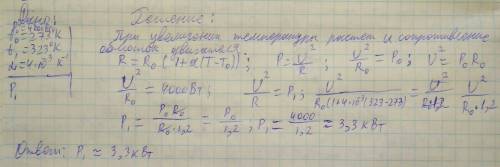 Дано:
P₀=4000Вт
t₀=273°K
t₁=323°K
α=4·10⁻³ K⁻¹
P₁
Решение:
При увеличении температуры растет и сопротивление
R=R₀(1+α(T-T₀)); P=U²/R; U²/R₀=P₀; U²=P₀R₀
U²/R₀=4000Вт; U²/R=P₁; U²/R₀(1+4·10⁻³(323-273))=U²/R₀·1,2
P₁=P₀R₀/R₀·1,2=P₀/1,2; P₁=4000/1,2≈3,3кВт
Ответ: P₁≈3,3кВт